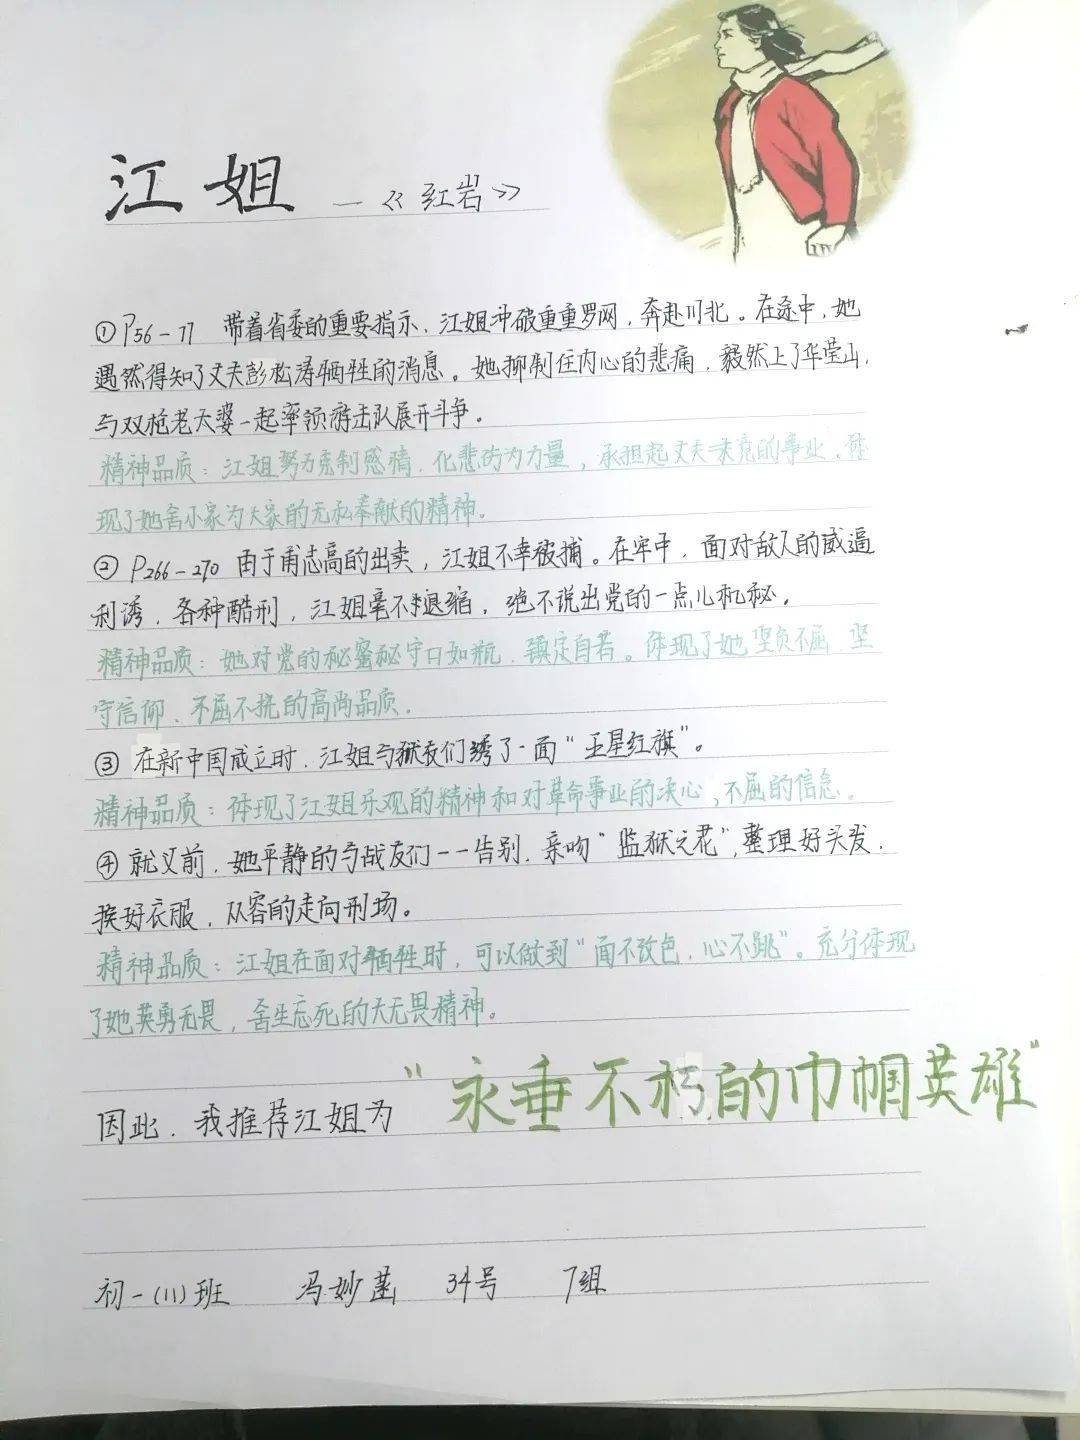 江姐 —《红岩》
①P56-77 带着省委的重要指示，江姐冲破重重罗网，奔赴川北。在途中，她
遇然得知了丈夫彭松涛牺牲的消息。她抑制住内心的悲痛，毅然上了华蓥山，
与双枪老太婆一起率领游击队展开斗争。
精神品质：江姐努力克制感情，化悲伤为力量，承担起丈夫未竟的事业。体
现了她舍小家为大家的无私奉献的精神。
② P266-270 由于甫志高的出卖，江姐不幸被捕。在牢中，面对敌人的威逼
利诱，各种酷刑，江姐毫不退缩，绝不说出党的一点儿机秘。
精神品质：她对党的秘蜜秘守口如瓶，镇定自若。体现了她坚贞不屈，坚
守信仰、不屈不挠的高尚品质。
③ 在新中国成立时，江姐与狱友们绣了一面“五星红旗”。
精神品质：体现了江姐乐观的精神和对革命事业的决心，不屈的信念。
④ 就义前，她平静的与战友们一一告别，亲吻“监狱之花”，整理好头发，
换好衣服，从容的走向刑场。
精神品质：江姐在面对牺牲时，可以做到“面不改色，心不跳”。充分体现
了她英勇无畏，舍生忘死的大无畏精神。
因此，我推荐江姐为“永垂不朽的巾帼英雄”
初一（11）班 冯妙菡 34号 7组